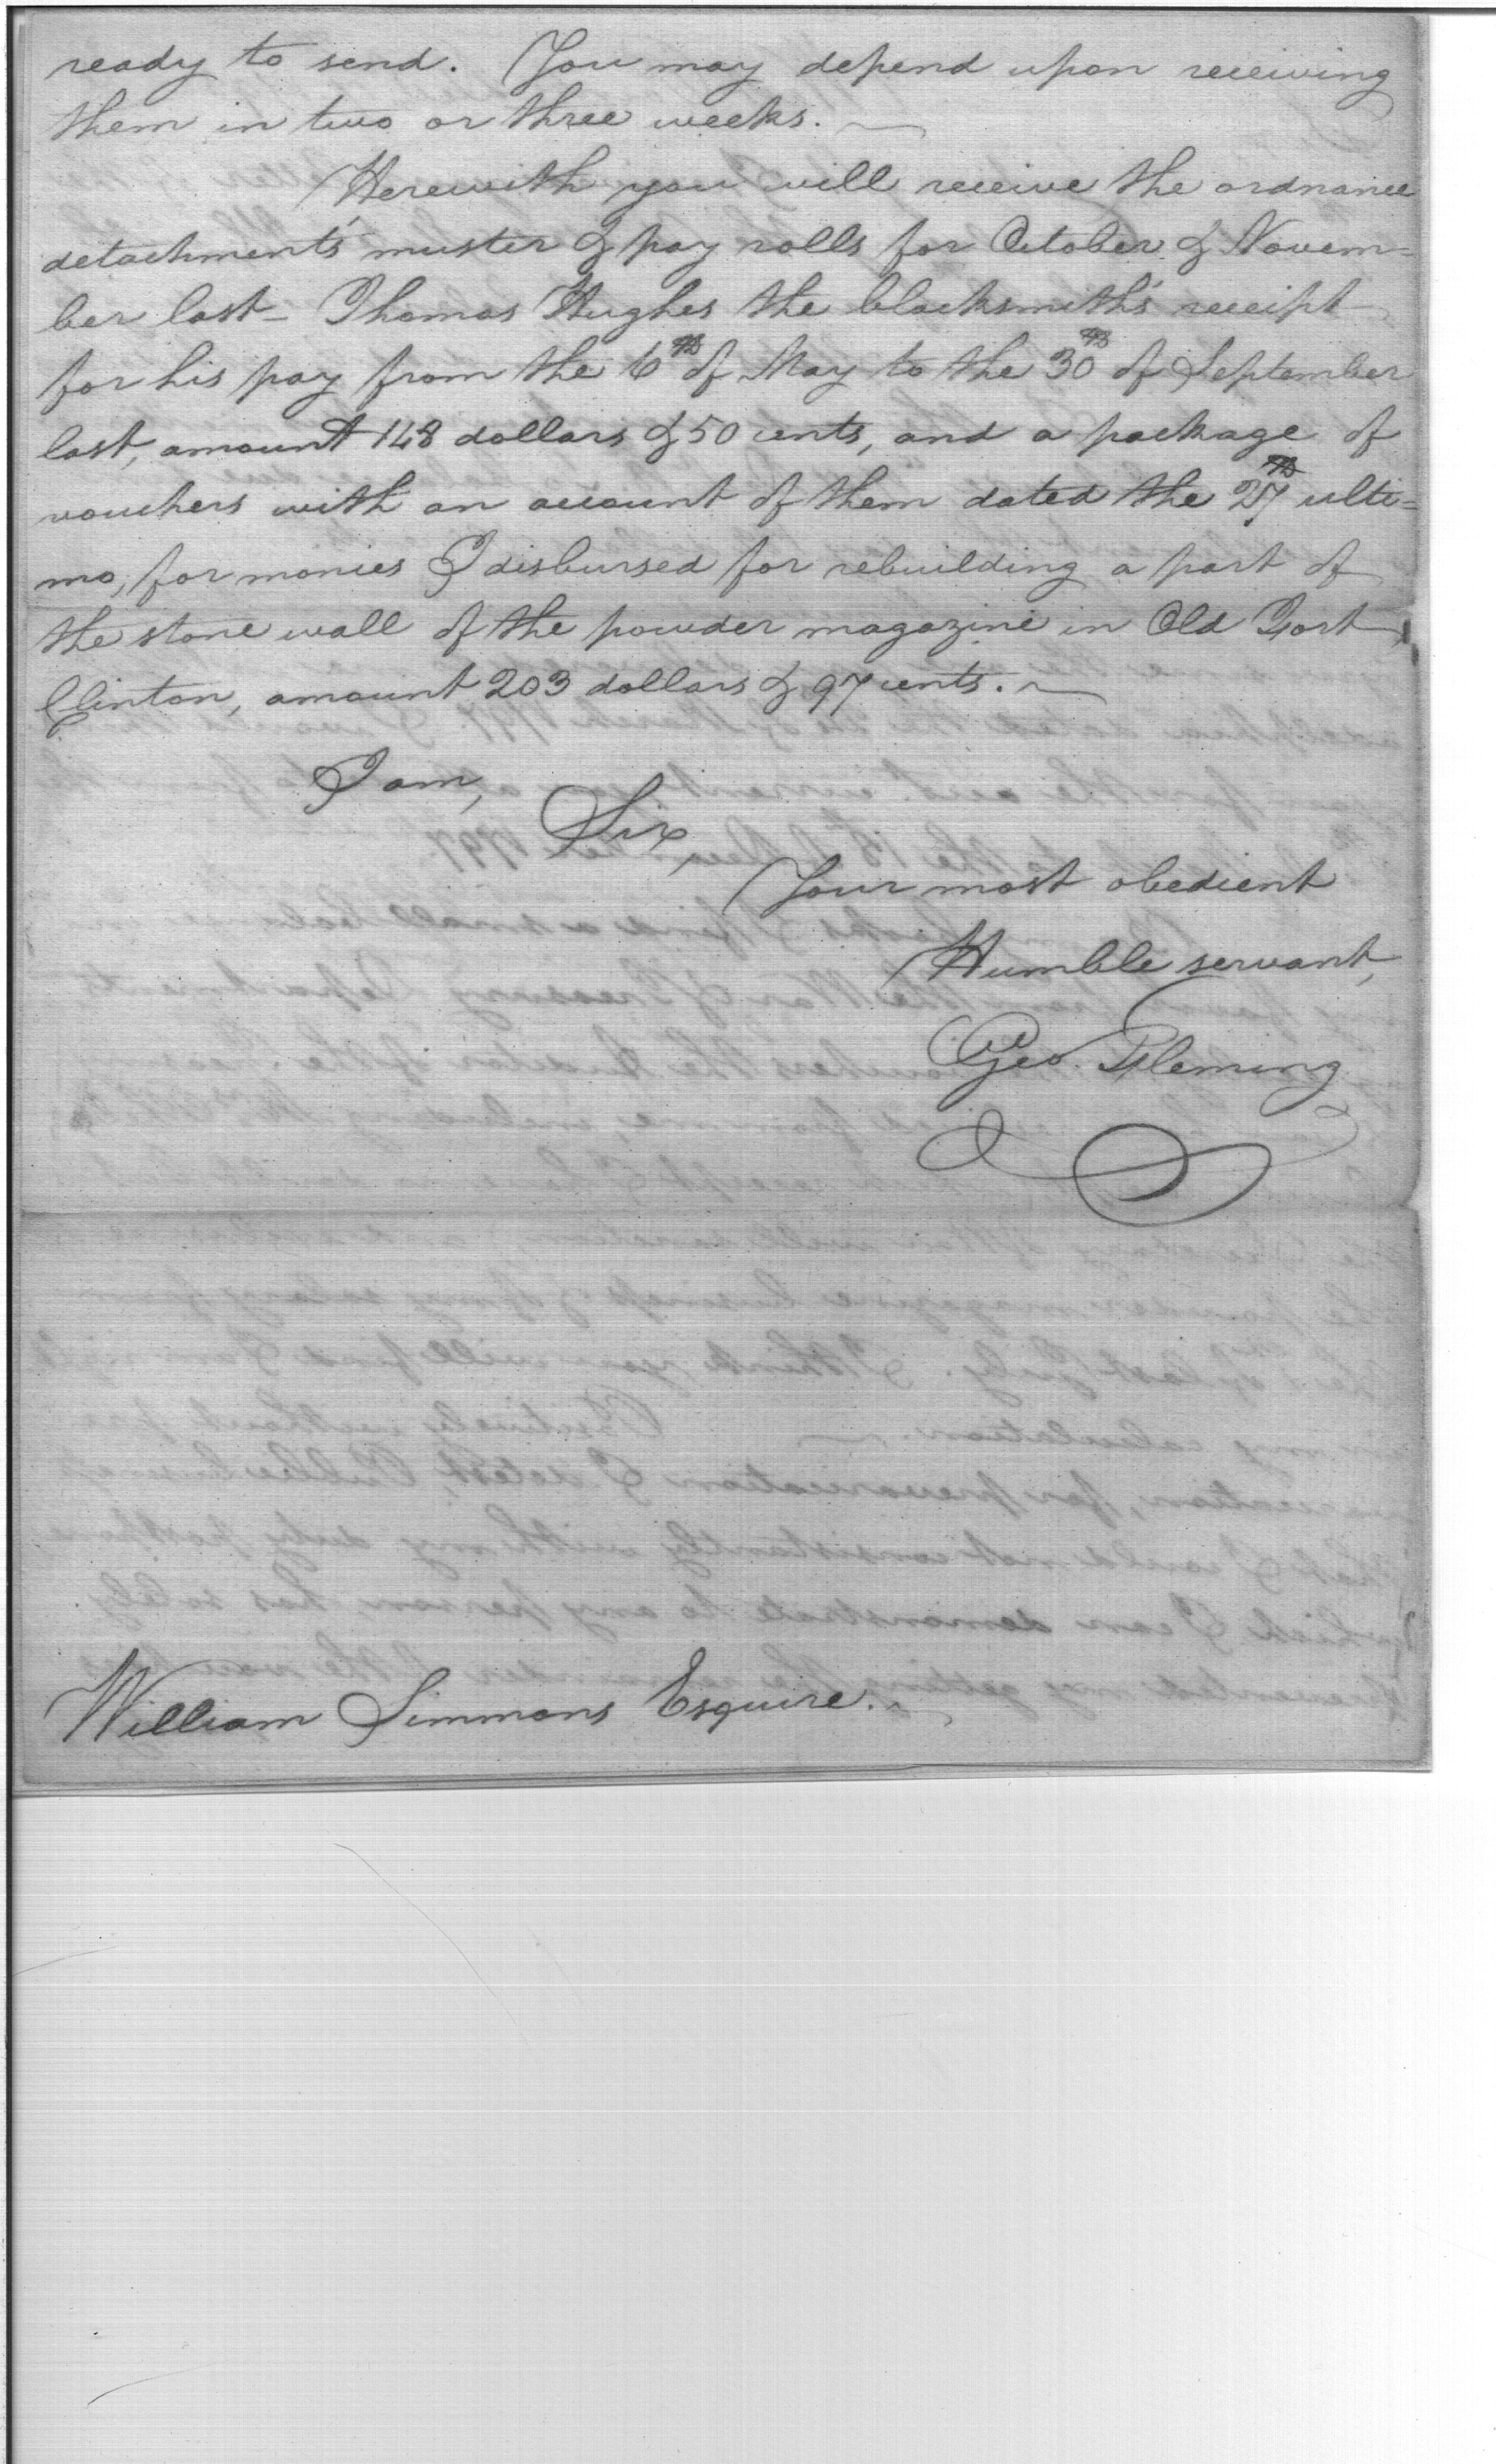 ready to send. You may depend upon receiving
them in two or three weeks.
Herewith you will receive the ordnance
detachment's muster & pay rolls for October & Novem=
ber last- Thomas Hughes the blacksmith's receipt
for his pay from the 6th of May to the 30th of September
last, amount 148 dollars & 50 cents, and a package of
vouchers with an account of them dated the 27th ulti=
mo, for monies I disbursed for rebuilding a part of
the stone wall of the powder magazine in Old Fort
Clinton, amount 203 dollars & 97 cents.
I am,
Sir,
Your most obedient
Humble servant,
Geo. Fleming
William Simmons Esquire.